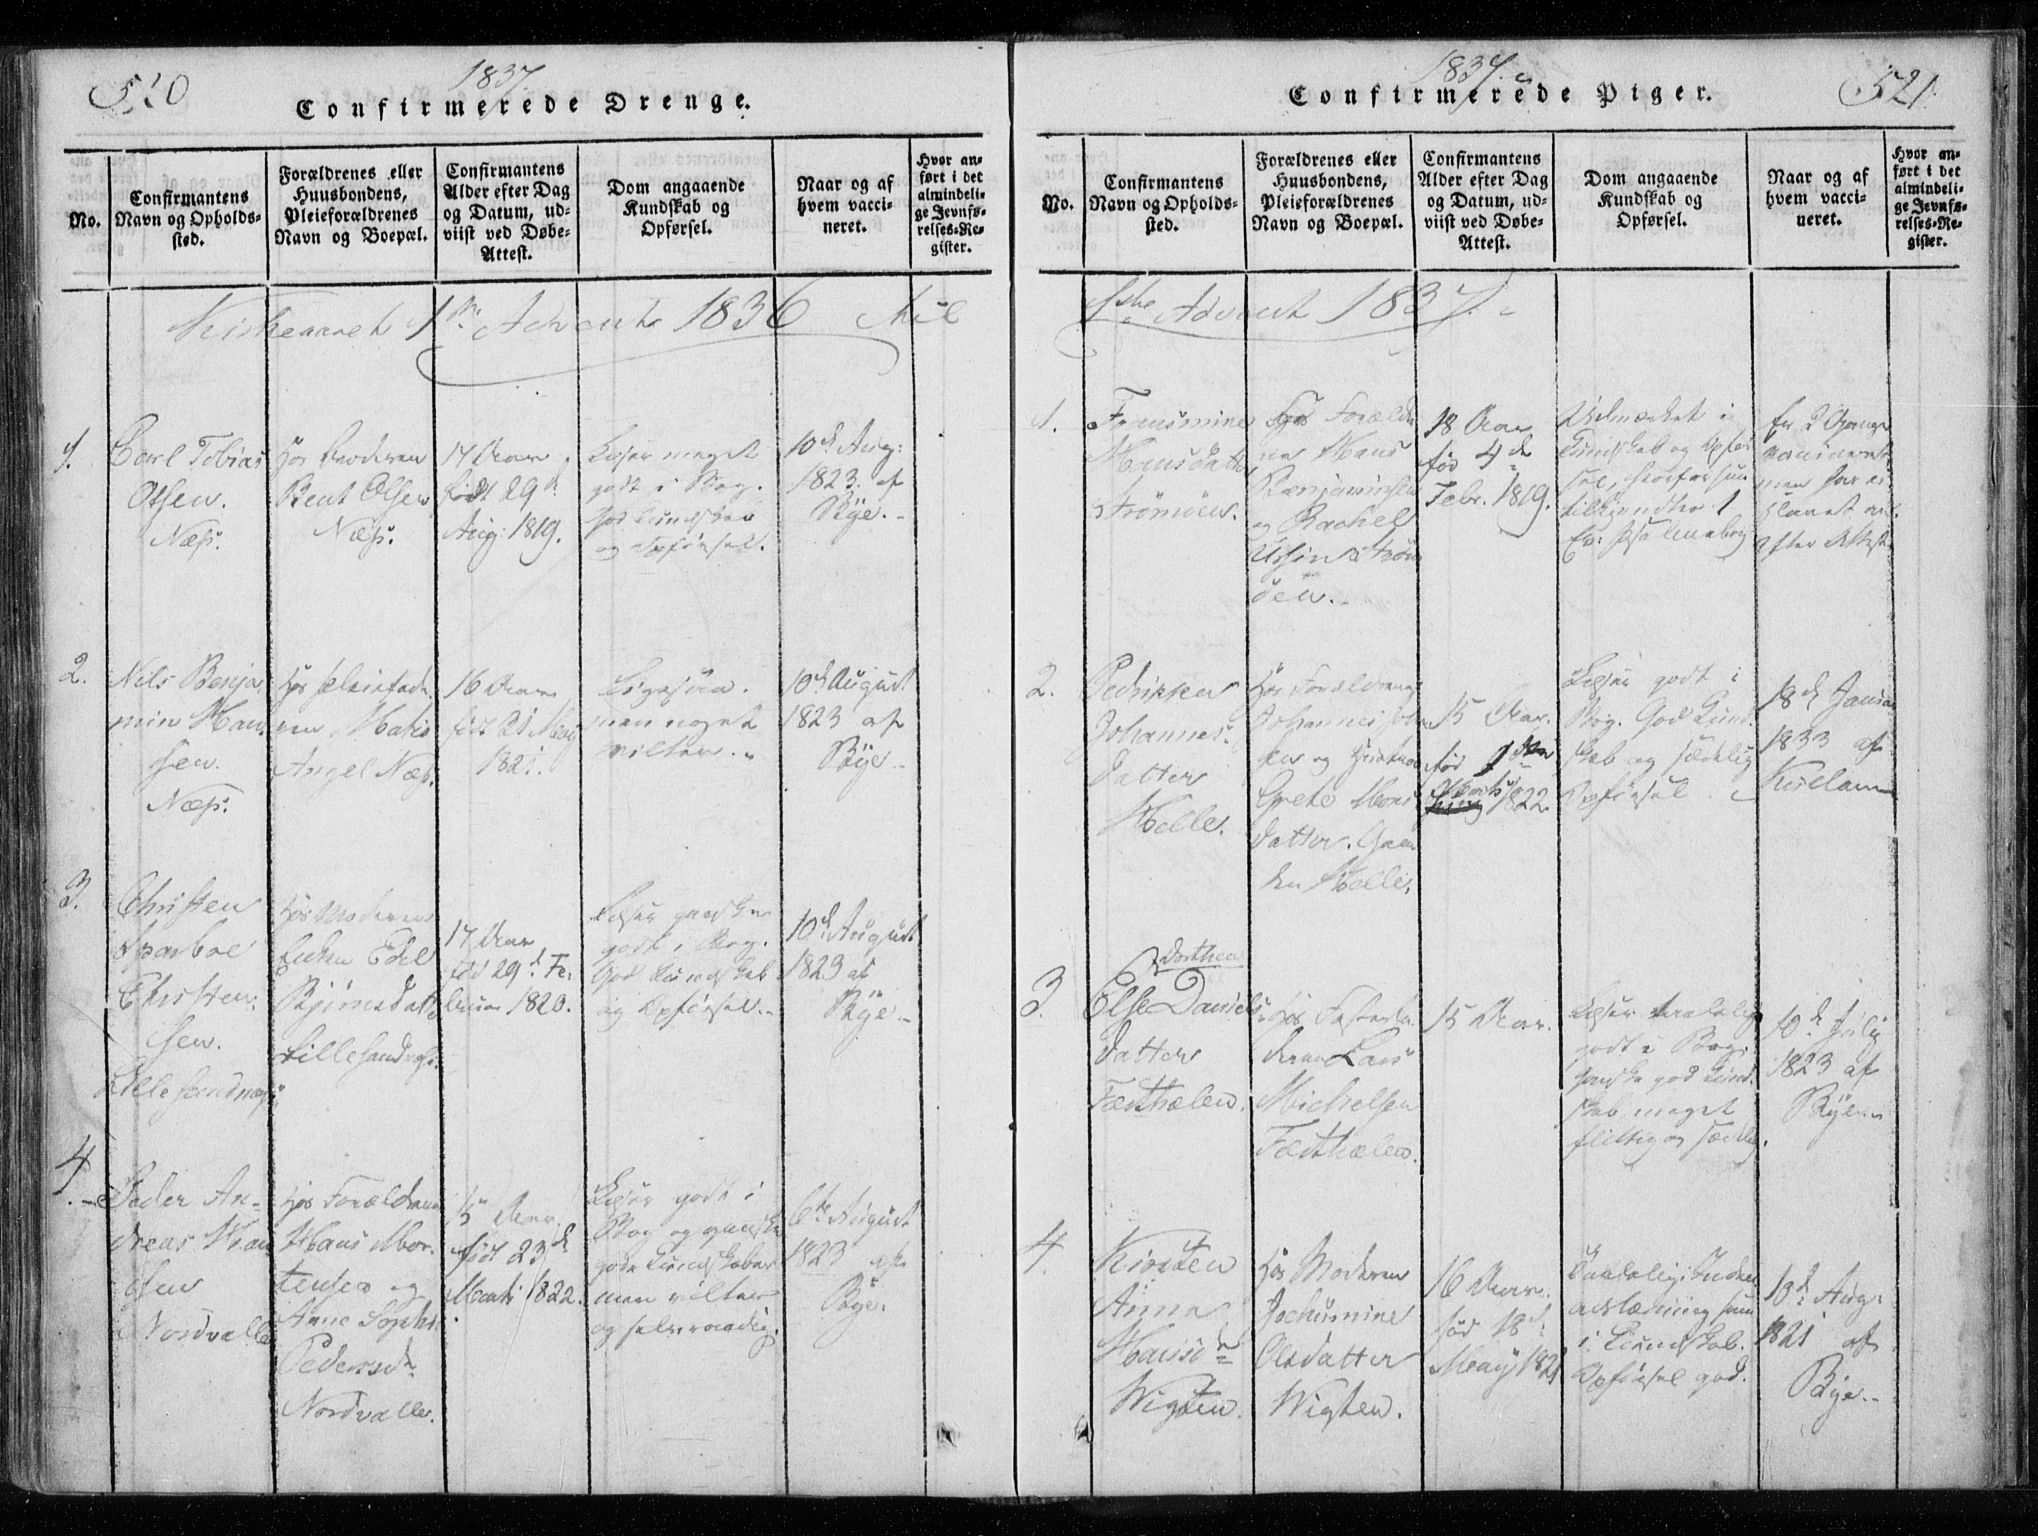 520
1837.
Confirmerede Drenge.
No.
Confirmantens
Navn og Opholds-
sted.
Forældrenes eller
Huusbondens,
Pleieforældrenes
Navn og Boepæl.
Confirmantens
Alder efter Dag
og Datum, ud-
viist ved Døbe-
Attest.
Dom angaaende
Kundskab og
Opførsel.
Naar og af
hvem vacci-
neret.
Hvor an-
ført i det
almindeli-
ge Jevnfø-
relses-Re-
gister.
Kirkeaaret 1ste Advent 1836 til
1.
Carl Tobias
Olsen.
Næss.
Hos Broderen
Bent Olsen
Næss.
17 Aar
født 29d
Aug: 1819.
Læser meget
godt i Bog.
God Kundskab
og Opførsel.
10d Aug:
1823. af
Bye.
2.
Nils Benja-
min Han-
sen.
Næss.
Hos Pleiefade-
ren Matis
Angel Næss.
16 Aar
født 21 May
1821.
Ligesaa.
men noget
vilter.
10d August
1823 af
Bye.
3.
Christen
Sparboe
Christen-
sen.
Lillesandnæss
Hos Moderen
Edel
Bjørnsdatt.
Lillesandness.
17 Aar
født 29d Fe-
bruar 1820.
Læser ganske
godt i Bog.
God Kundskab
og Opførsel.
10d August
1823 af
Bye.
4.
Peder An-
dreas Han-
sen
Nordvalle
Hos Forældrene
Hans Mor-
tensen og
Anne Sophi
Pedersd.
Nordvalle.
15 Aar
født 23d
Marts 1822.
Læser godt i
Bog og ganske
gode Kundskaber
men vilter
og selvraadig.
6te August
1823 af
Bye.
1837.
521
Confirmerede Piger.
No.
Confirmantens
Navn og Opholds-
sted.
Forældrenes eller
Huusbondens,
Pleieforældrenes
Navn og Boepæl.
Confirmantens
Alder efter Dag
og Datum, ud-
viist ved Døbe-
Attest.
Dom angaaende
Kundskab og
Opførsel.
Naar og af
hvem vacci-
neret.
Hvor an-
ført i det
almindeli-
ge Jevnfø-
relses-Re-
gister.
1ste Advent 1837.
1.
Hansdatter
Strømöen.
Hos Foræld-
ne Hans
Benjaminsen
og Rachel
Strøm-
öen.
18 Aar
fød 4d
Febr. 1819.
Udmærket i
Kundskab og Opfør-
sel, hvorfor hun
tilkjendtes 1
Ev: Psalmebog
Er 2 Gange
vaccineret
men har ei
slaaet an.
efter Attest
2.
Pedrikke
Johannes-
Datter
Melle.
Hos Forældrene
Johannes
og Hustrue
Grete Mons-
datter. Gaar-
den Melle.
15 Aar.
fød 1
Marts 1822
Læser godt i
Bog. God Kund-
skab og sædelig
Opførsel.
18d Januar
1833 af
Kullam
3.
Dorthea
Else Daniels-
datter
Fædthælen.
Hos
Lars
Michelsen
Fædthælen.
15 Aar.
Læser taalelig
godt i Bog.
Ganske god Kund-
skab. meget
flittig og sædelig.
10d July
1823 af
Bye.
4.
Kirsten
Anna
Hansd.
Wigten.
Hos Moderen
Jochumine
Olsdatter
Wigten.
16 Aar.
fød 18d
May 1821
Taalelig i Inden-
adslæsning som
i Kundskab.
Opførsel god.
10d Aug:
1821 af
Bye.